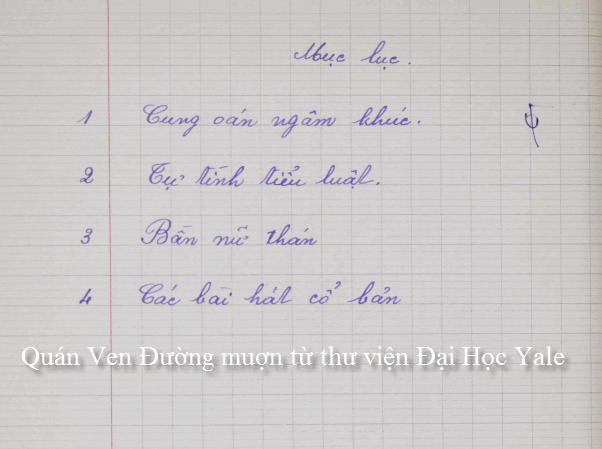 Mục lục.
1 Cung oán ngâm khúc.
2 Tự tính tiểu luật.
3 Bần nữ thán
4 Các bài hát cổ bản
Quán Ven Đường muợn từ thư viện Đại Học Yale